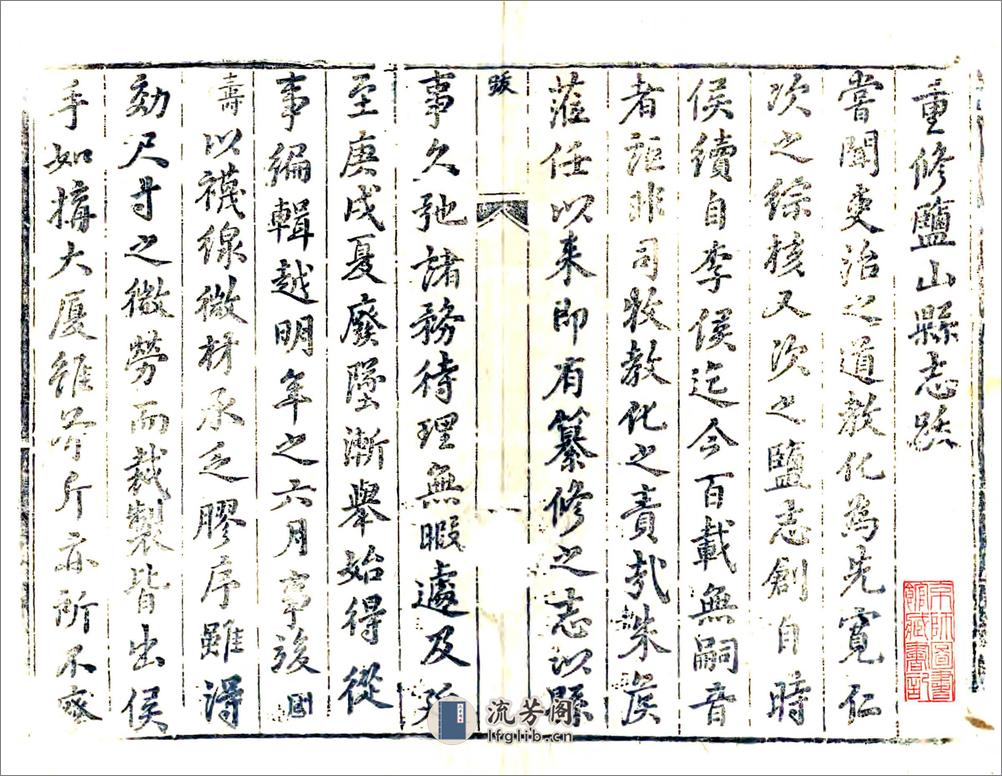 重修鹽山縣志跋
嘗聞吏治之道教化為先寬仁
次之綜核又次之鹽志創自時
侯續自李侯迄今百載無嗣音
者詎非司牧教化之責哉朱侯
蒞任以來即有纂修之志以縣
跋
事久弛諸務待理無暇遽及
至庚戌夏廢墜漸舉始得從
事編輯越明年之六月事竣
壽以襪線微材承乏膠序雖得
効尺寸之微勞而裁製皆出侯
手如搆大厦錐斧斤亦所不
京師圖書館藏書記
流芳阁
lfglib.cn